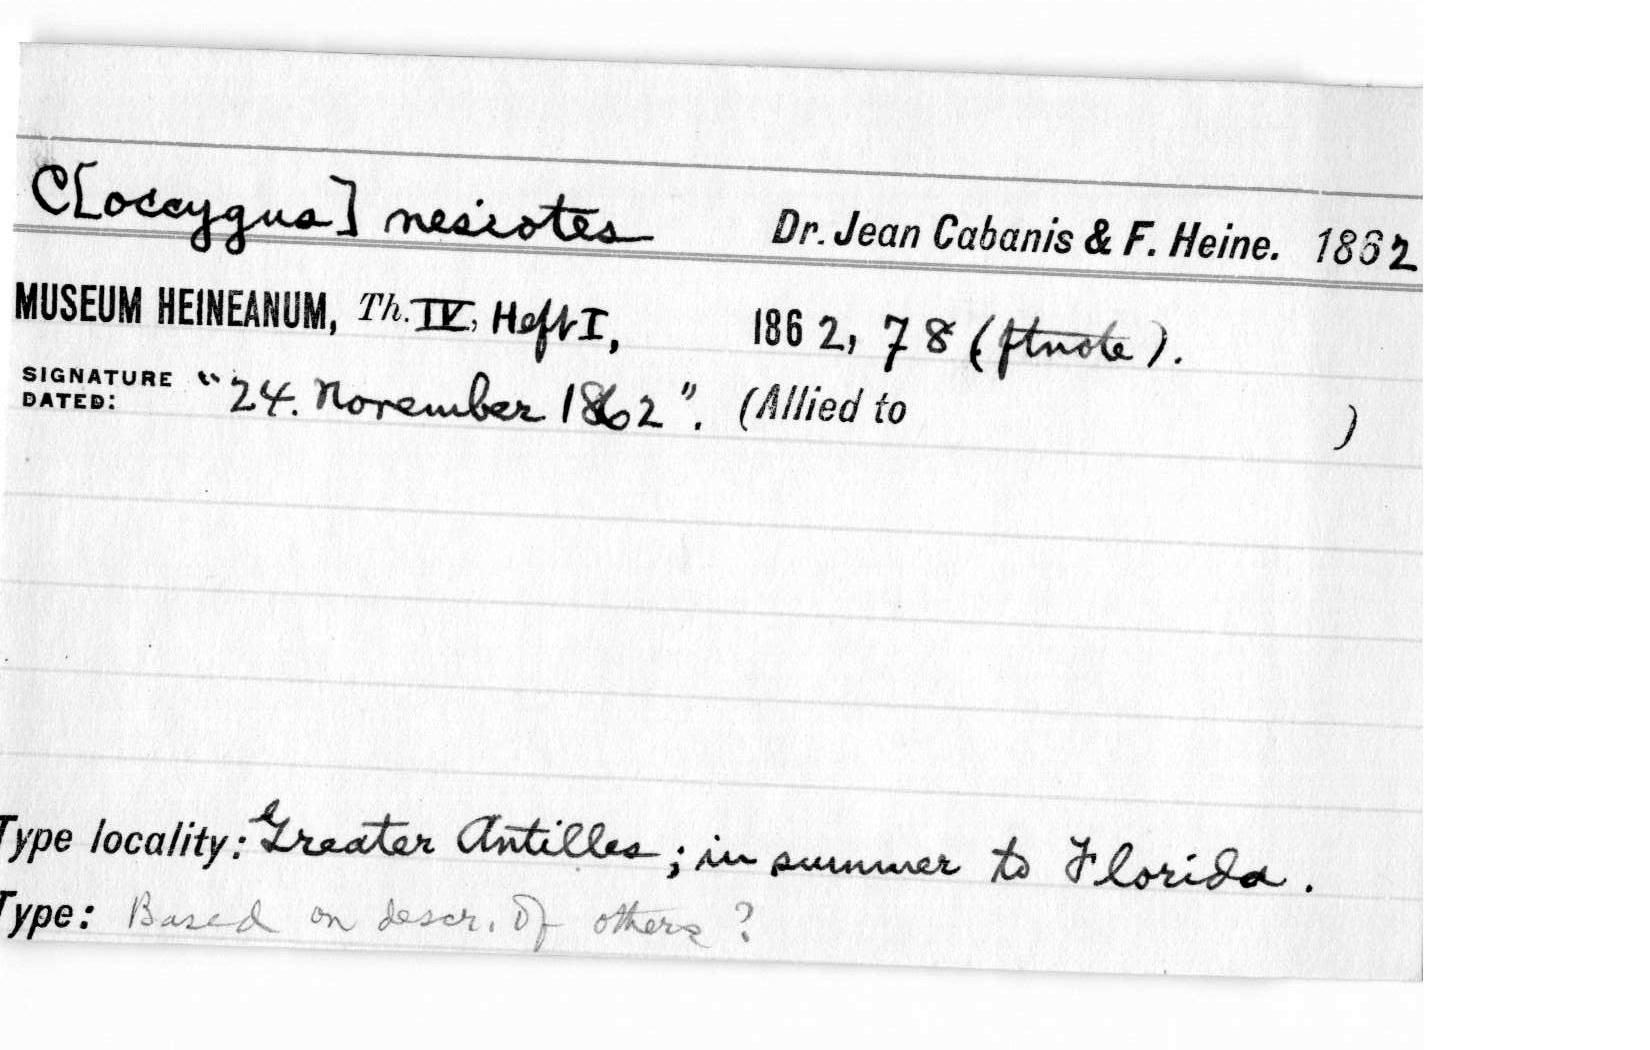 C[occygus] nesiotes Dr. Jean Cabanis & F. Heine. 1862
MUSEUM HEINEANUM, Th. IV, Heft I, 1862, 78 (ftnote).
SIGNATURE DATED: "24. November 1862". (Allied to )
Type locality: Greater Antilles; in summer to Florida.
Type: Based on descr. of others?